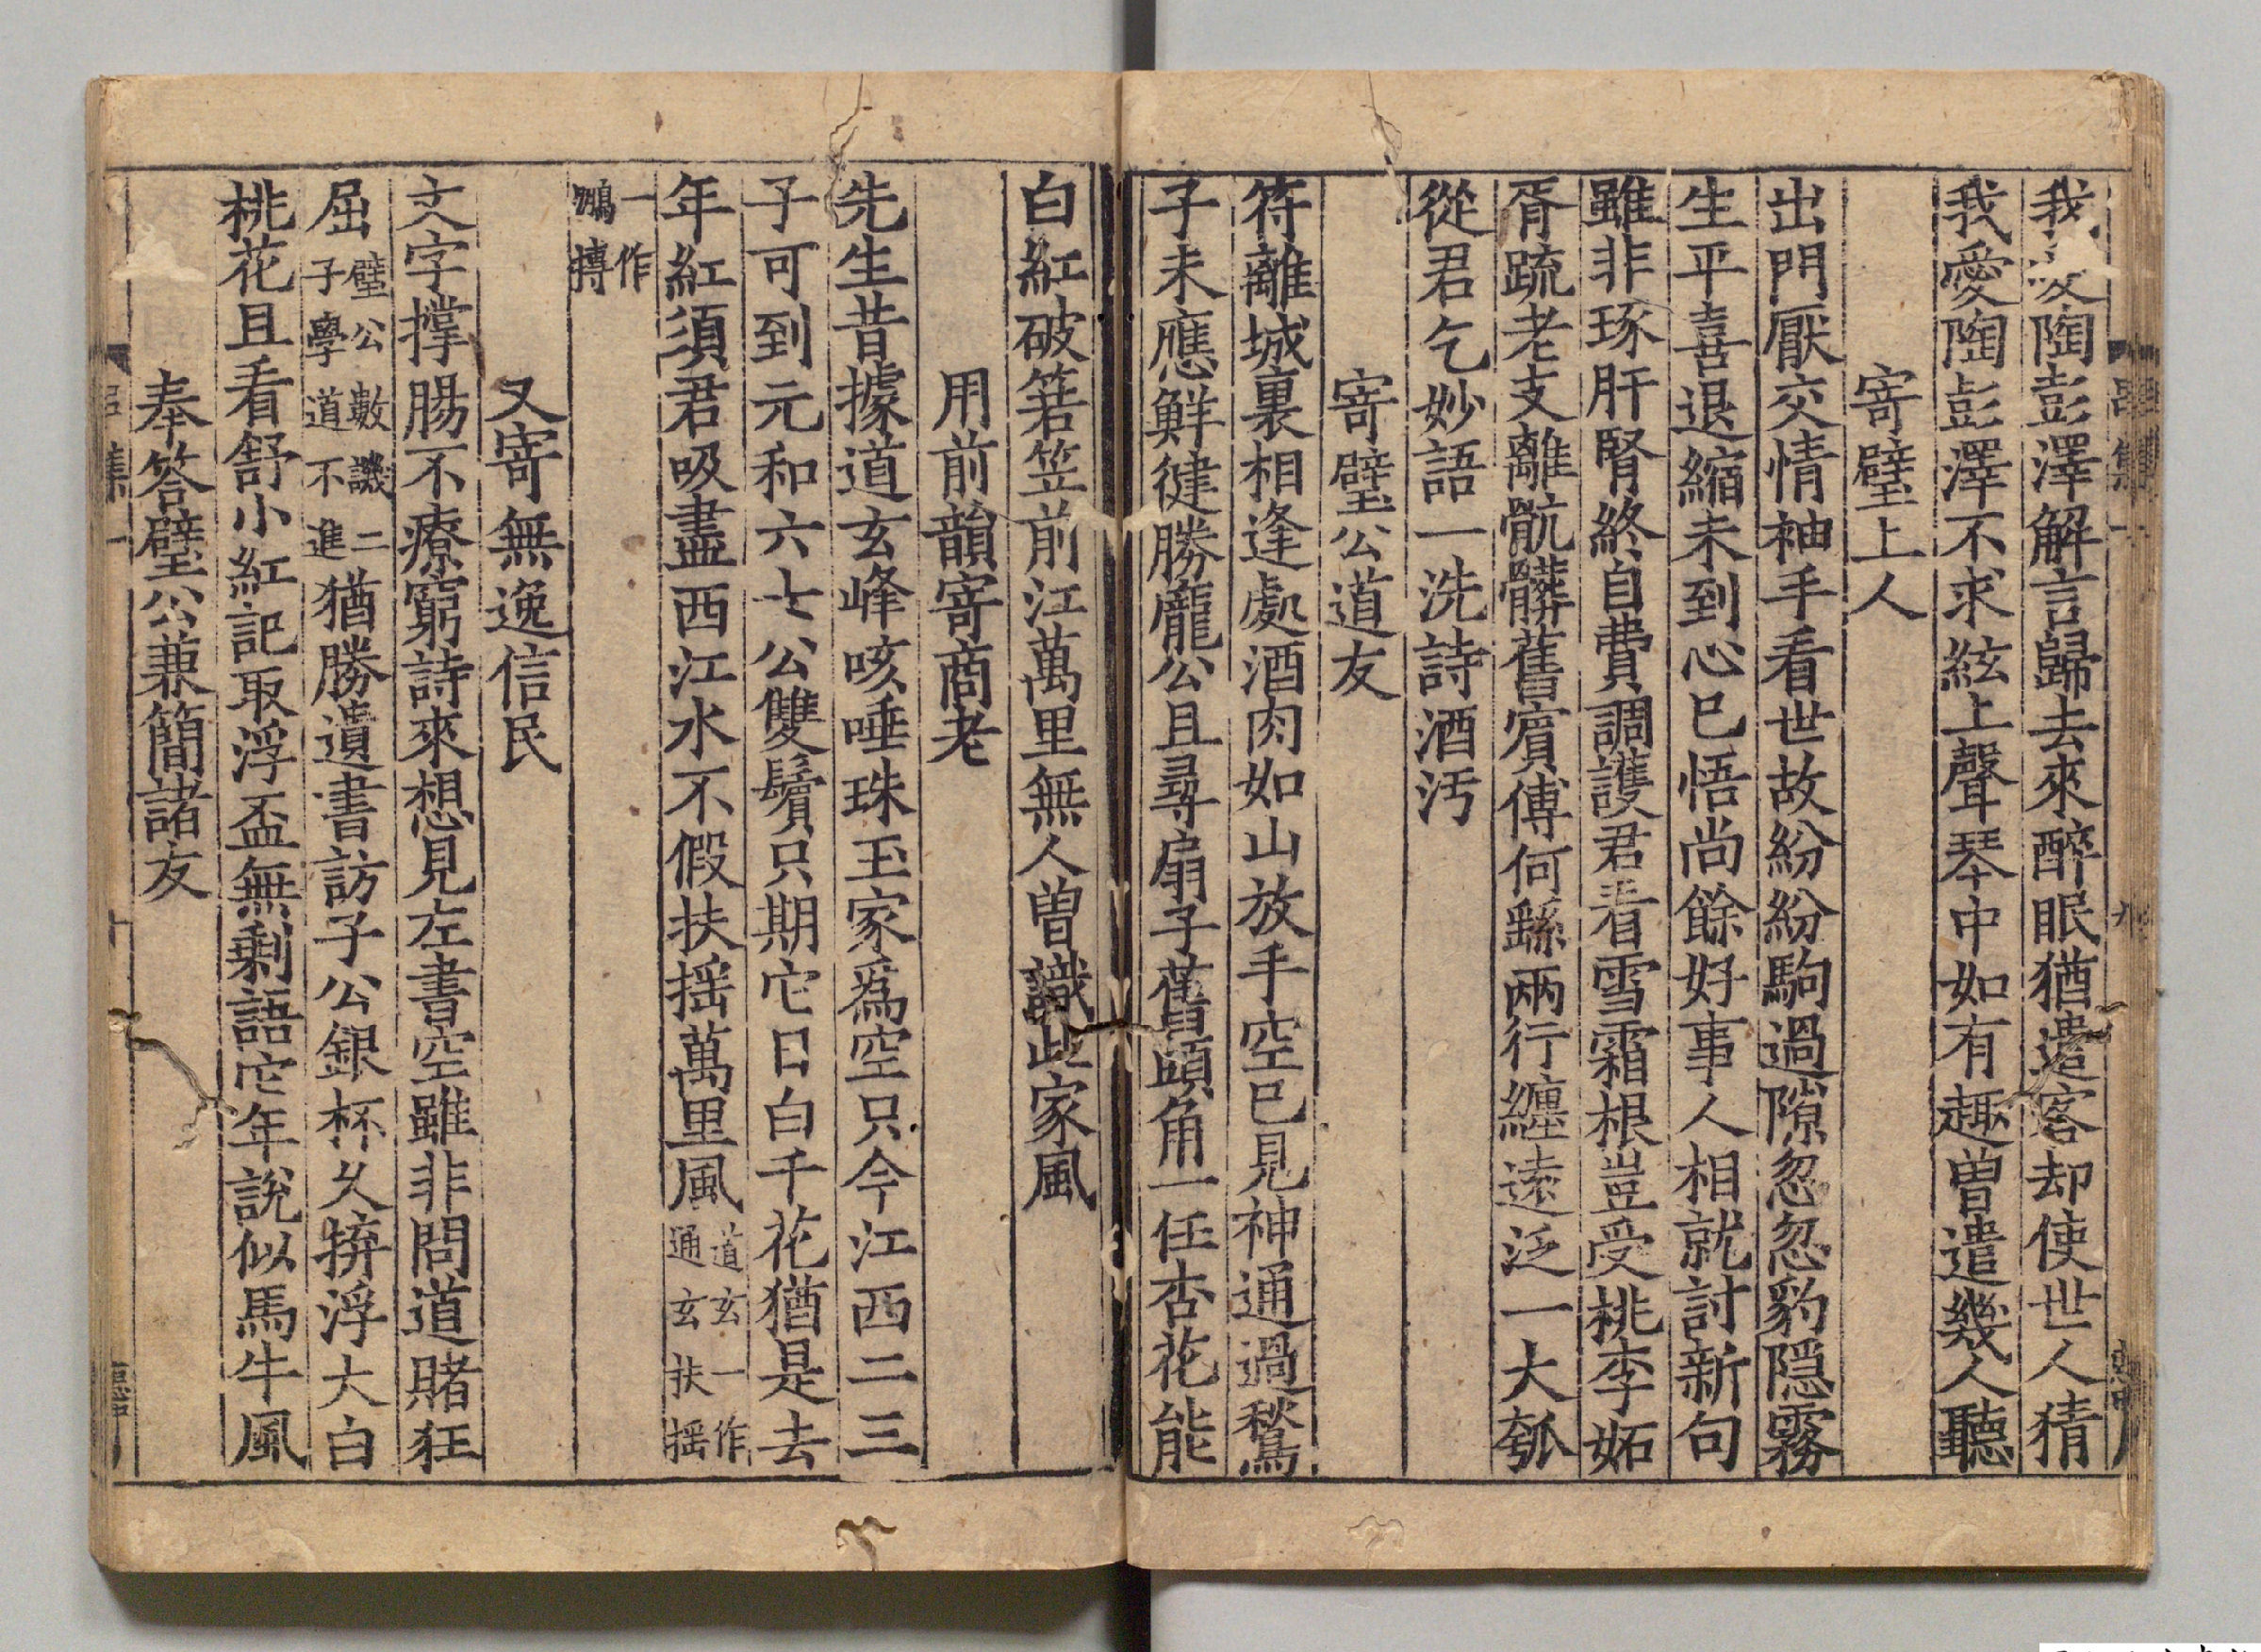 我愛陶彭澤解言歸去來醉眠猶遣客却使世人猜
我愛陶彭澤不求絃上聲琴中如有趣曽遣幾人聽
寄璧上人
出門厭交情袖手看世故紛紛駒過隙忽忽豹隠霧
生平喜退縮未到心已悟尚餘好事人相就討新句
雖非琢肝腎終自費調護君看雪霜根豈受桃李妬
胥疏老支離骯髒舊賔傅何繇兩行纏遠泛一大瓠
從君乞妙語一洗詩酒汚
寄璧公道友
符離城裏相逢處酒肉如山放手空已見神通過鶖
子未應鮮健勝龐公且尋扇子舊頭角一任杏花能
白紅破箬笠前江萬里無人曽識此家風
用前韻寄商老
先生昔據道玄峰咳唾珠玉家爲空只今江西二三
子可到元和六七公雙鬢只期它日白千花猶是去
年紅須君吸盡西江水不假扶揺萬里風道玄一作通玄扶揺
一作鵰摶
又寄無逸信民
文字撑腸不療窮詩來想見左書空雖非問道賭狂
屈璧公數譏二子學道不進猶勝遺書訪子公銀杯久擠浮大白
桃花且看舒小紅記取浮盃無剩語它年說似馬牛風
奉答璧公兼簡諸友